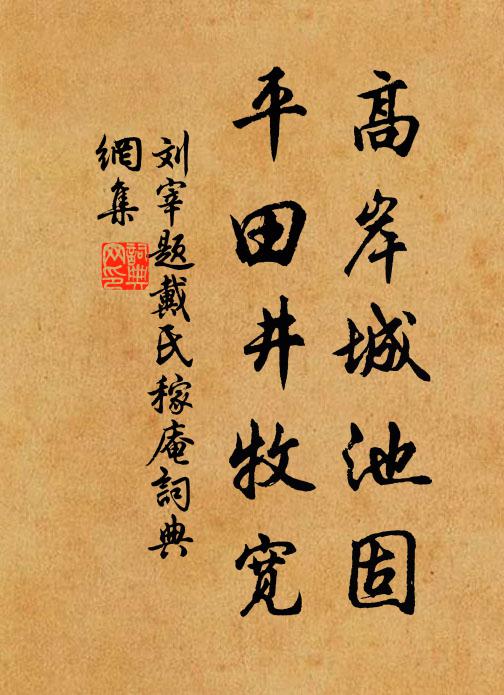 高岸城池固
平田井牧宽
刘宰题戴氏稼庵詞典
網集
詞典
网印